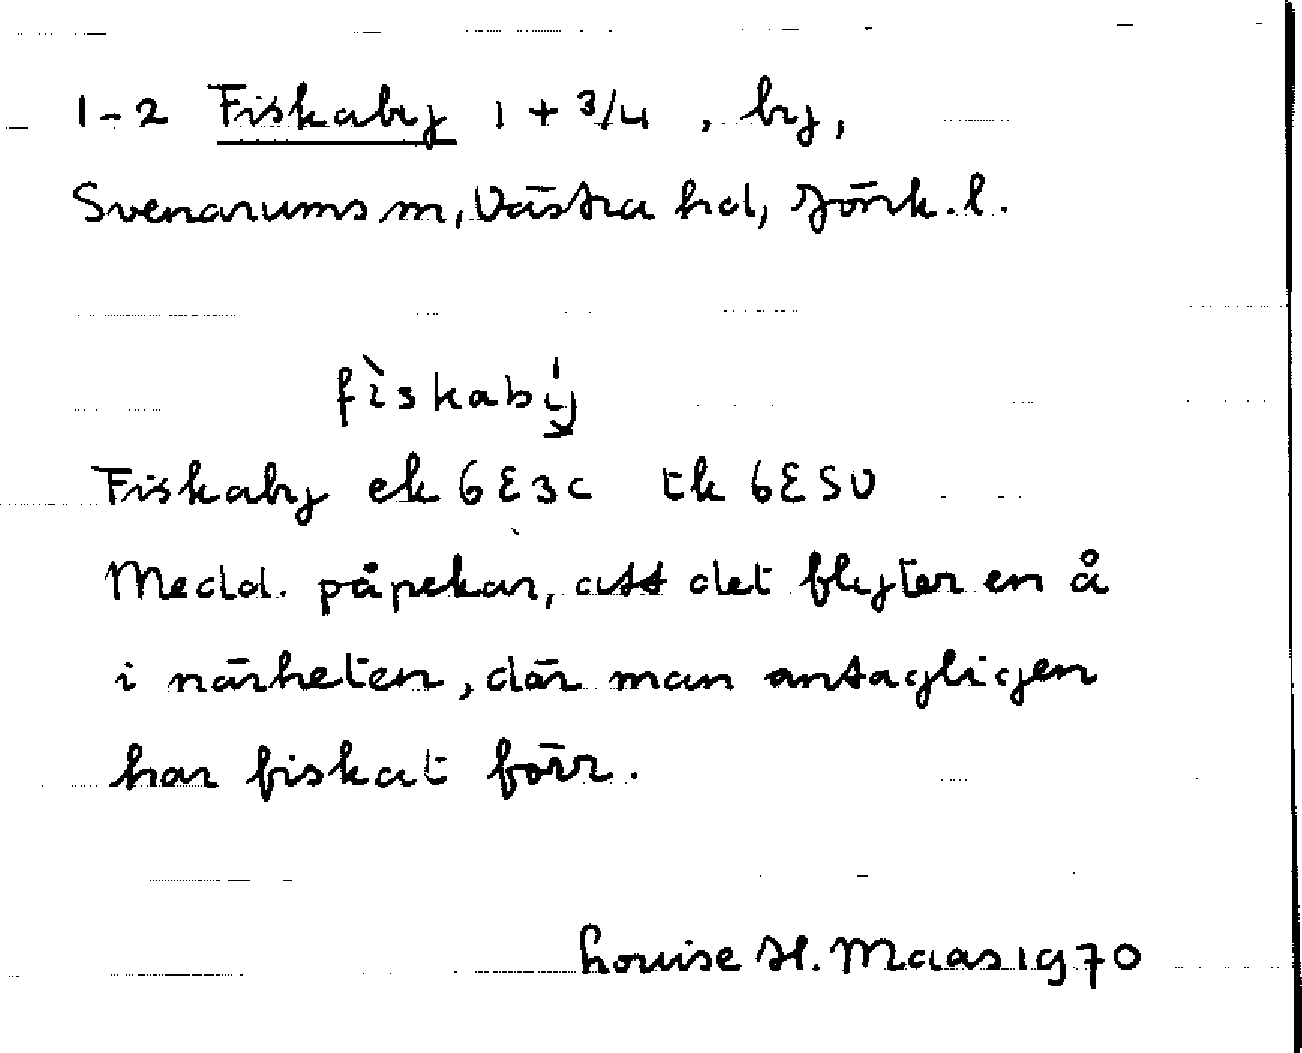 1-2 Fiskaby 1 + 3/4 , by,
Svenarums sn, Västra hd, Jönk. l.
fìskabý
Fiskaby ek 6E3c tk 6E5U
Medd. påpekar, att det flyter en å
i närheten, där man antagligen
har fiskat förr.
Louise H. Maas 1970